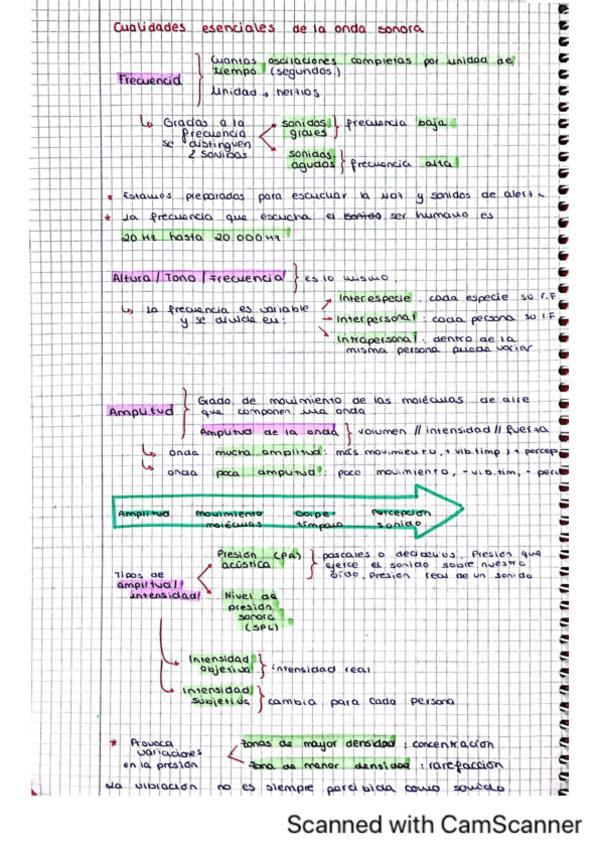 Cualidades esenciales de la onda sonora
Cuantas oscilaciones completas por unidad de
tiempo (segundos)
Frecuencia
Unidad → hertios
↳ Gracias a la frecuencia se distinguen 2 sonidos
sonidos graves } frecuencia baja
sonidos agudos } frecuencia alta
* Estamos preparados para escuchar la voz y sonidos de alerta
* La frecuencia que escucha el ser humano es
20 Hz hasta 20 000 Hz
Altura / Tono / Frecuencia } es lo mismo.
↳ la frecuencia es variable y se divide en:
Interespecie. cada especie su r.F
Interpersonal: cada persona su r.F
Intrapersonal: dentro de la
misma persona puede variar
Amplitud
Grado de movimiento de las moléculas de aire
que componen una onda
Amplitud de la onda } volumen // intensidad // fuerza
↳ onda mucha amplitud: más movimiento, + vib. timp. y + percep
↳ onda poca amplitud: poco movimiento, - vib. tim, - perc
Amplitud movimiento moléculas Golpe tímpano Percepción sonido
Tipos de amplitud // intensidad
Presión (PA) acústica
pascales o decibelios. Presión que
ejerce el sonido sobre nuestro
oído. Presión real de un sonido
Nivel de
presión
sonora
(SPL)
Intensidad objetiva } intensidad real
Intensidad subjetiva } cambia para cada persona
* Provoca variaciones en la presión
zonas de mayor densidad: concentración
zona de menor densidad: rarefacción
La vibración no es siempre percibida como sonido
Scanned with CamScanner